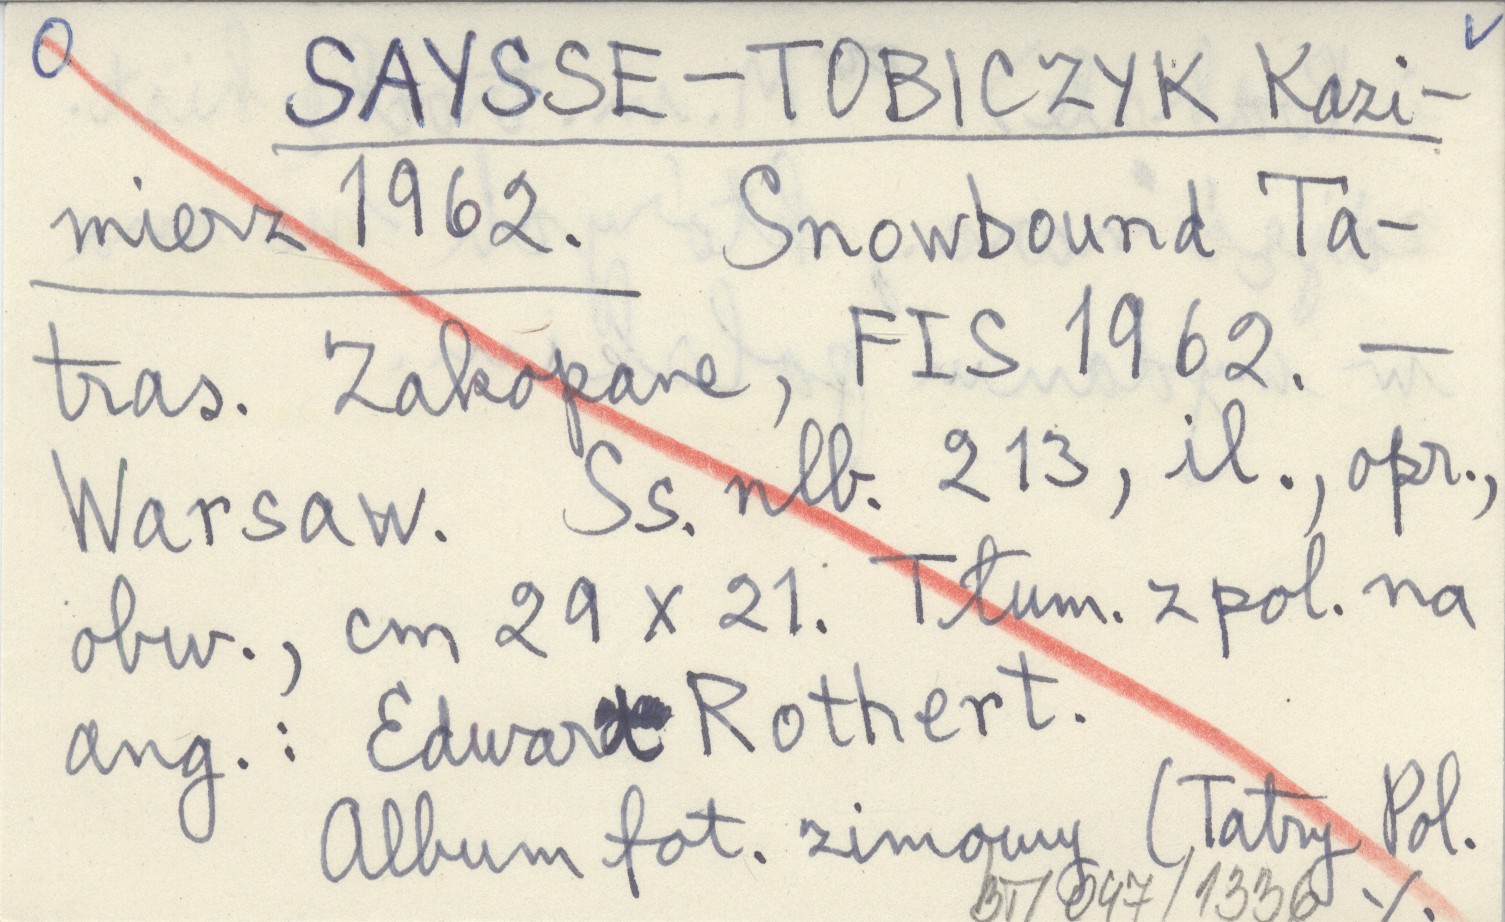 O SAYSSE-TOBICZYK Kazi- v
mierz 1962. Snowbound Ta-
tras. Zakopane, FIS 1962. —
Warsaw. Ss. nlb. 213, il., opr.,
obw., cm 29 x 21. Tłum. z pol. na
ang.: Edward Rothert.
Album fot. zimowy (Tatry Pol.
BT/047/1336 ./.